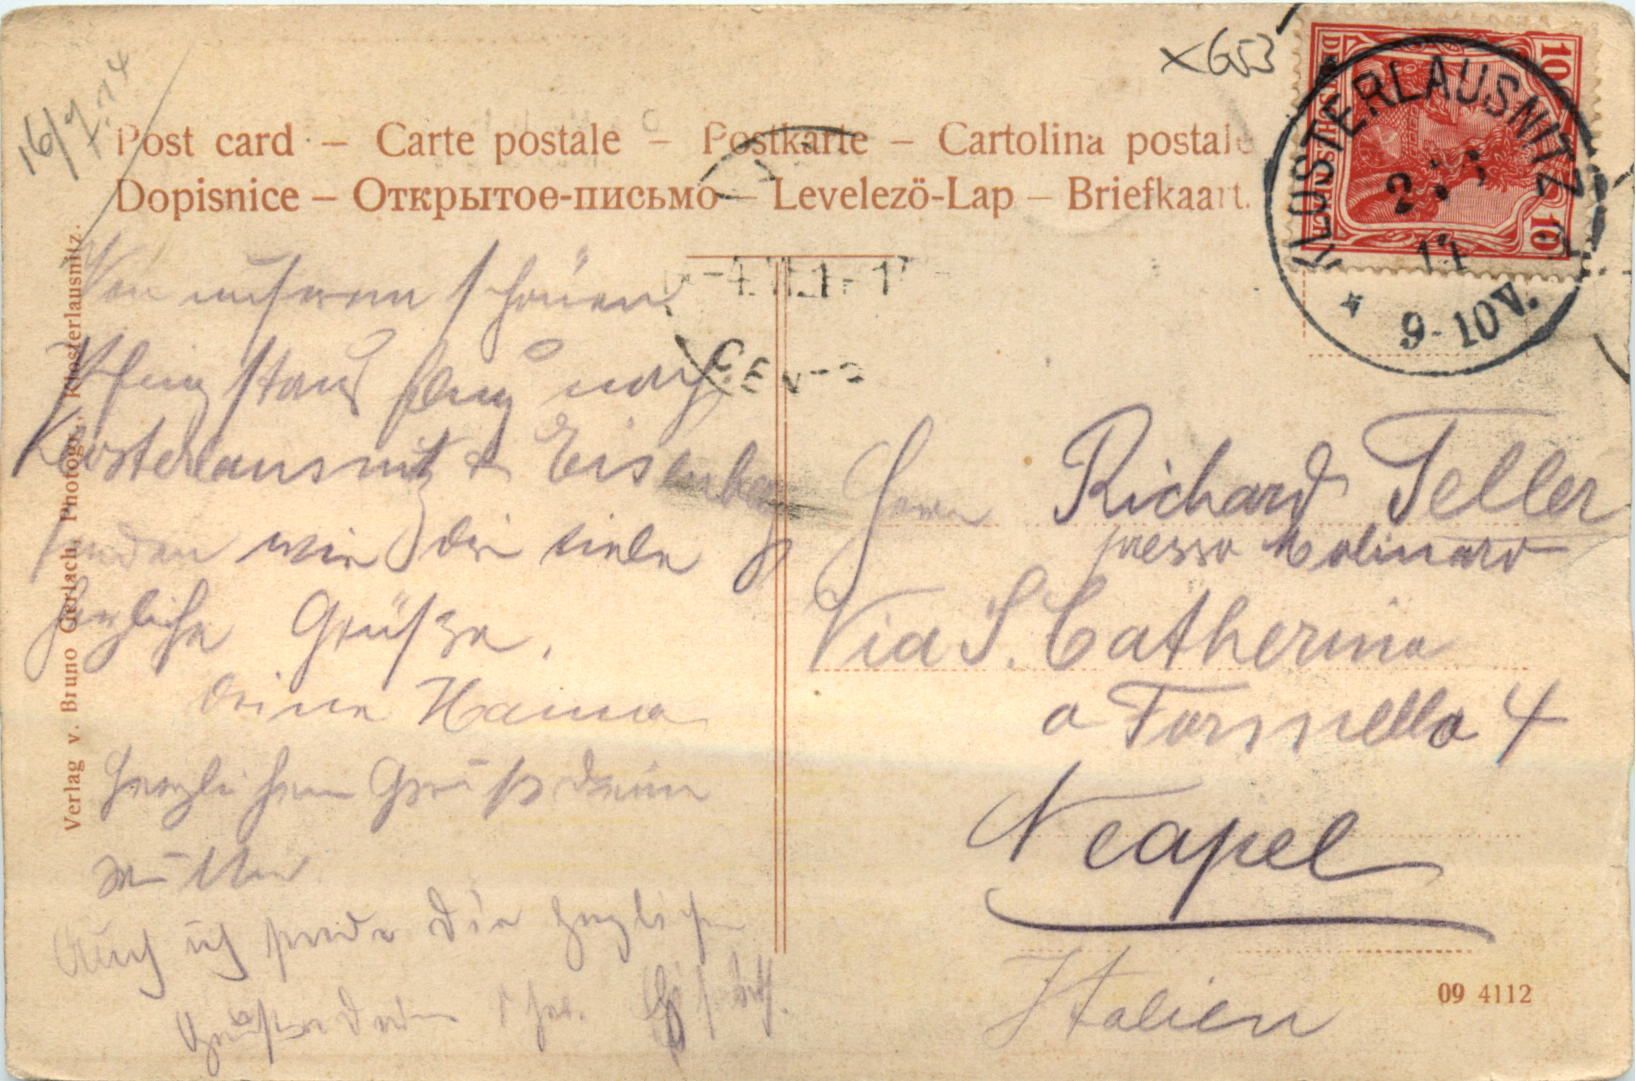 16/7.14
× G53
Post card – Carte postale – Postkarte – Cartolina postale
Dopisnice – Открытое-письмо – Levelezö-Lap – Briefkaart.
KLOSTERLAUSNITZ
9-10V.
10
10
Von unserem schönen
Pfingstausflug nach
Klosterlausnitz & Eisenberg
senden wir dir viele
herzliche Grüsse.
Deine Hanna
Herzlichen Gruß Deine
Mutter
Auch ich sende Dir herzliche
Grüsse
Herrn Richard Teller
presso Molinaro
Via S. Catherina
a Formello 4
Neapel
Italien
09 4112
Verlag v. Bruno Gerlach, Photogr., Klosterlausnitz.